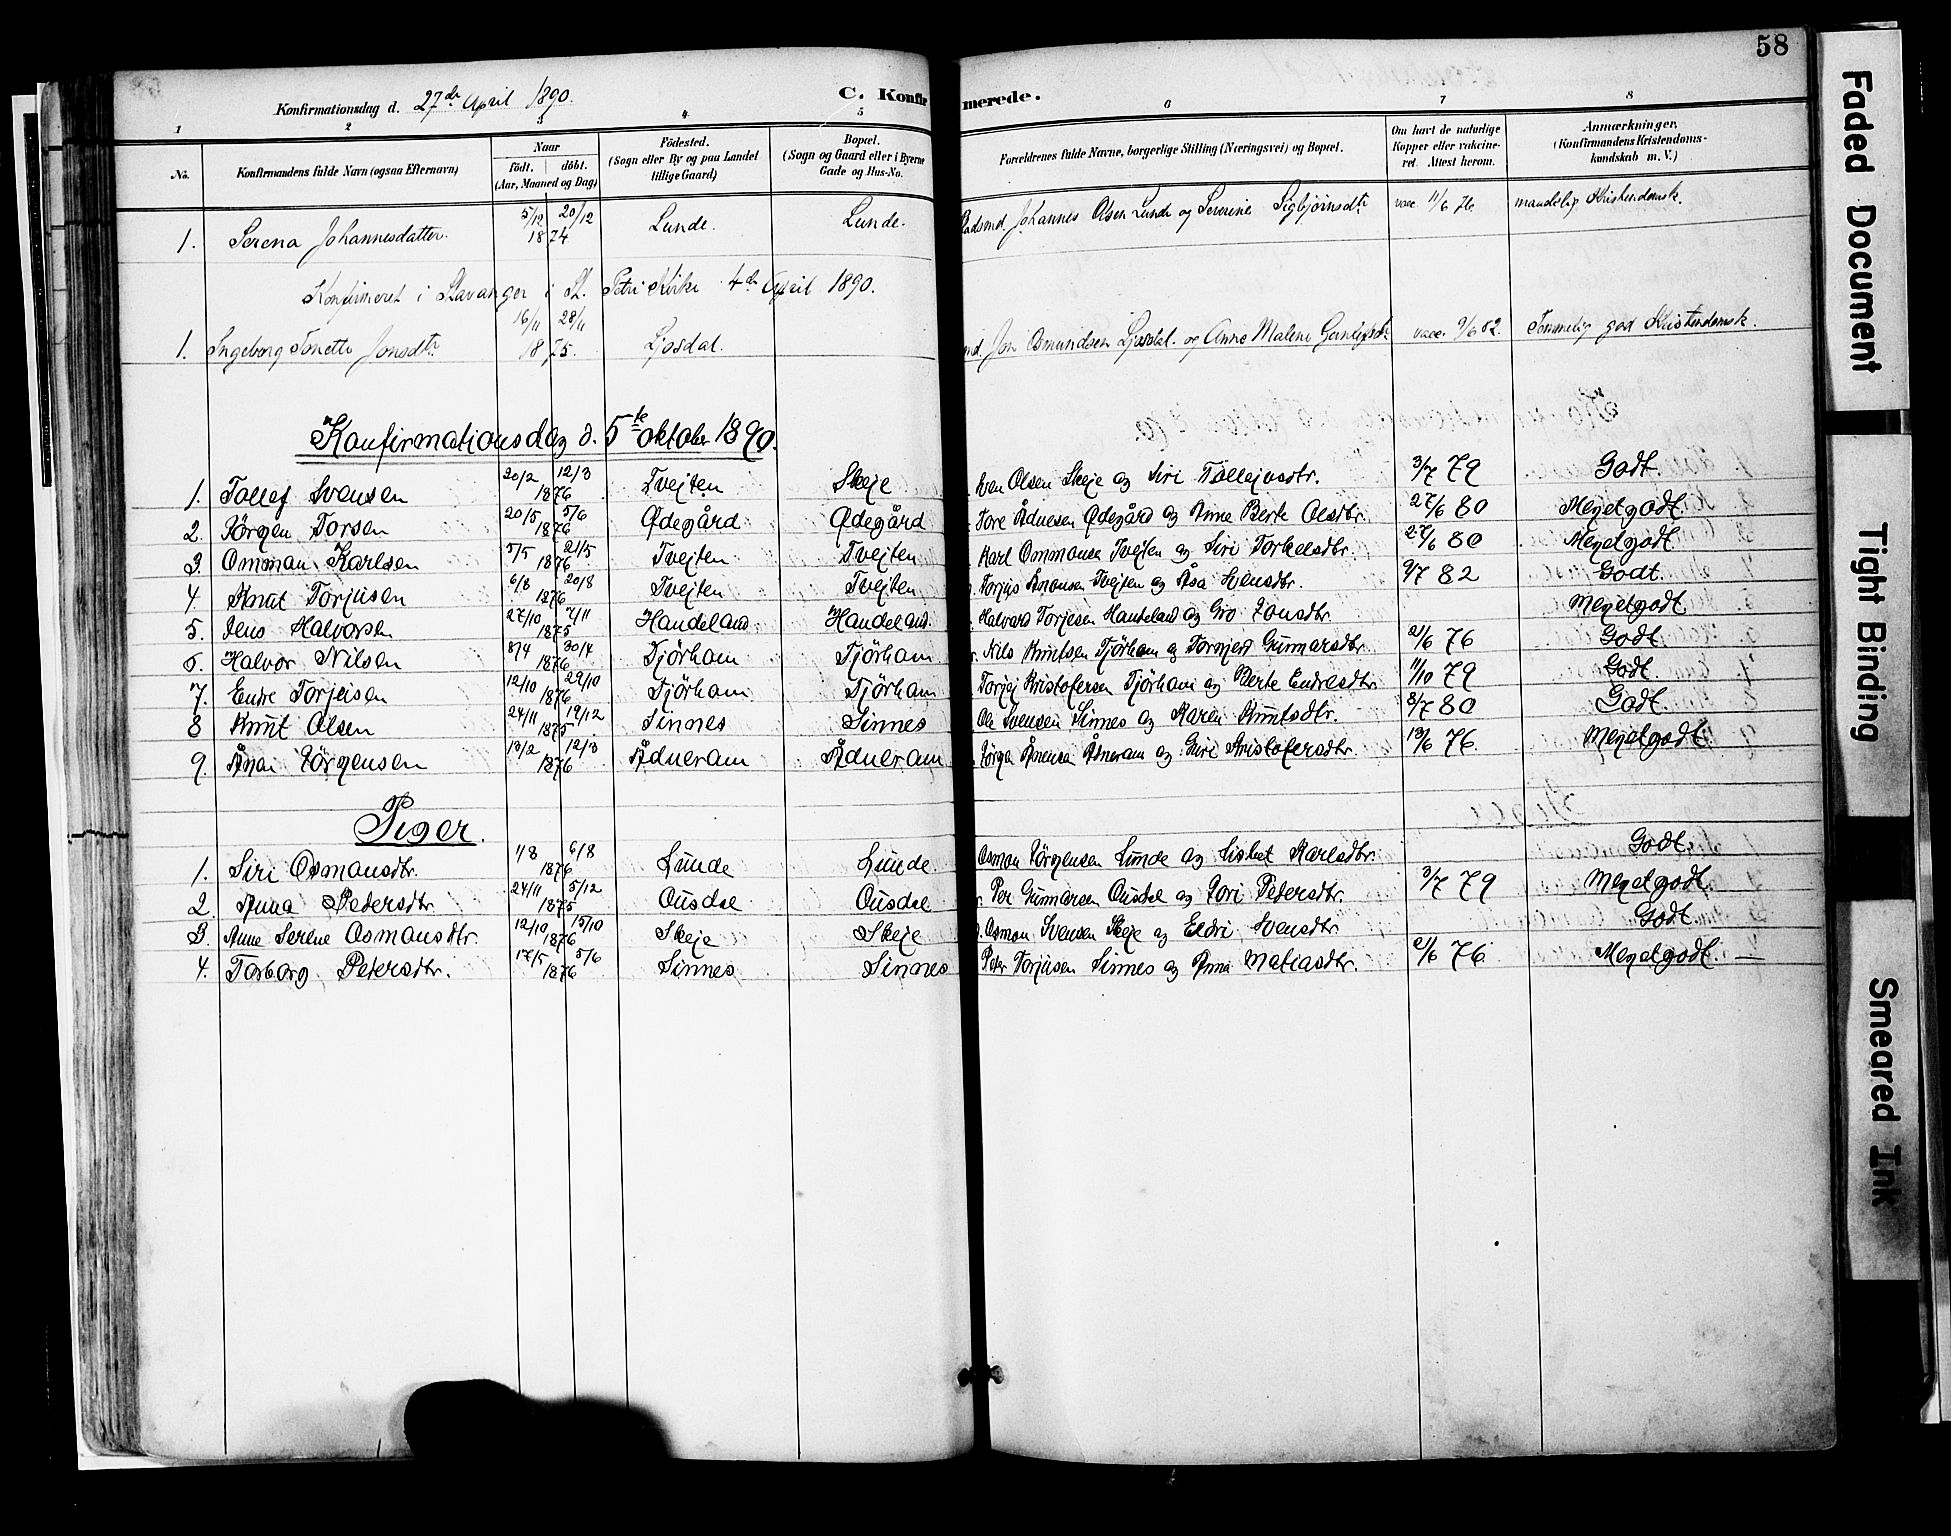 58
Konfirmationsdag d. 27de April 1890. C. Konfirmerede.
1 2 3 4 5 6 7 8
No. Konfirmandens fulde Navn (ogsaa Efternavn) Naar födt. döbt. (Aar, Maaned og Dag) Födested. (Sogn eller By og paa Landet tillige Gaard) Bopæl. (Sogn og Gaard eller i Byerne Gade og Hus-No. Forældrenes fulde Navne, borgerlige Stilling (Næringsvei) og Bopæl. Om havt de naturlige Kopper eller vakcineret. Attest herom. Anmærkninger. (Konfirmandens Kristendomskundskab m. V.)
1. Serena Johannesdatter. 5/12 20/12 1874 Lunde. Lunde. Johannes Olsen Lunde og Severine Sigbjörnsdt. vacc. 11/6 76. mandelig Kristendomsk.
Konfirmeret i Stavanger i St. Petri Kirke 4de April 1890.
1. Ingeborg Tonette Jonsdtr. 16/11 28/11 1875. Ljosdal. Jon Osmundsen Ljosdal og Anne Malene vacc. 9/6 82. Temmelig god Kristendomsk.
Konfirmationsdag d. 5te oktober 1890.
1. Tollef Svensen 20/2 12/3 1876 Tvejten Skeje Sven Olsen Skeje og Siri Tollejvsdtr. 3/7 79 Godt.
2 Jörgen Torsen 20/5 5/6 1876 Ødegård Ødegård Tore Ådnesen Ødegård og Anne Berte Olsdtr. 27/6 80 Megetgodt.
3. Omman Karlsen 5/5 21/5 1876 Tvejten Tvejten Karl Ommansen Tvejten og Siri Torkelsdtr. 27/6 80 Megetgodt.
4. Knut Torjusen 6/8 20/8 1876 Tvejten Tvejten Torjus Ånonsen Tvejten og Åsa Svensdtr. 9/7 82 Godt.
5. Jens Halvorsen 27/10 7/11 1875 Handeland Handeland Halvard Torjesen Handeland og Gro Jonsdtr. Megetgodt
6. Halvor Nilsen 8/4 30/4 1876 Tjörham Tjörham Nils Knutsen Tjörham og Tormjerd Gunnarsdtr. 21/6 76 Godt.
7. Endre Torjeisen 12/10 29/10 1876 Tjörham Tjörham Torjej Kristofersen Tjörham og Berte Endresdtr. 11/10 79 Godt.
8 Knut Olsen 24/11 19/12 1875 Sinnes Sinnes Ole Svensen Sinnes og Karen Knutsdtr. 8/7 80 Godt.
9. Ånen Jörgensen 13/2 12/3 1876 Ådneram Ådneram Jörgen Ånensen Ådneram og Guri Kristofersdtr. 13/6 76. Megetgodt.
Piger.
1. Siri Osmonsdtr. 1/8 6/8 1876 Lunde Lunde Osmon Jörgensen Lunde og Lisbet Karlsdtr. Godt.
2. Anna Pedersdtr. 24/11 5/12 1875 Ousdal Ousdal Per Gunnarsen Ousdal og Tori Pedersdtr. 3/7 79 Megetgodt.
3. Anne Serene Osmonsdtr. 12/10 15/10 1876 Skeje Skeje Osmon Svensen Skeje og Eldri Svensdtr. Godt
4. Torborg Petersdtr. 17/5 5/6 1876 Sinnes Sinnes Peter Torjusen Sinnes og Anna Matiasdtr. 21/6 76 Megetgodt. —
Faded Document
Tight Binding
Smeared Ink